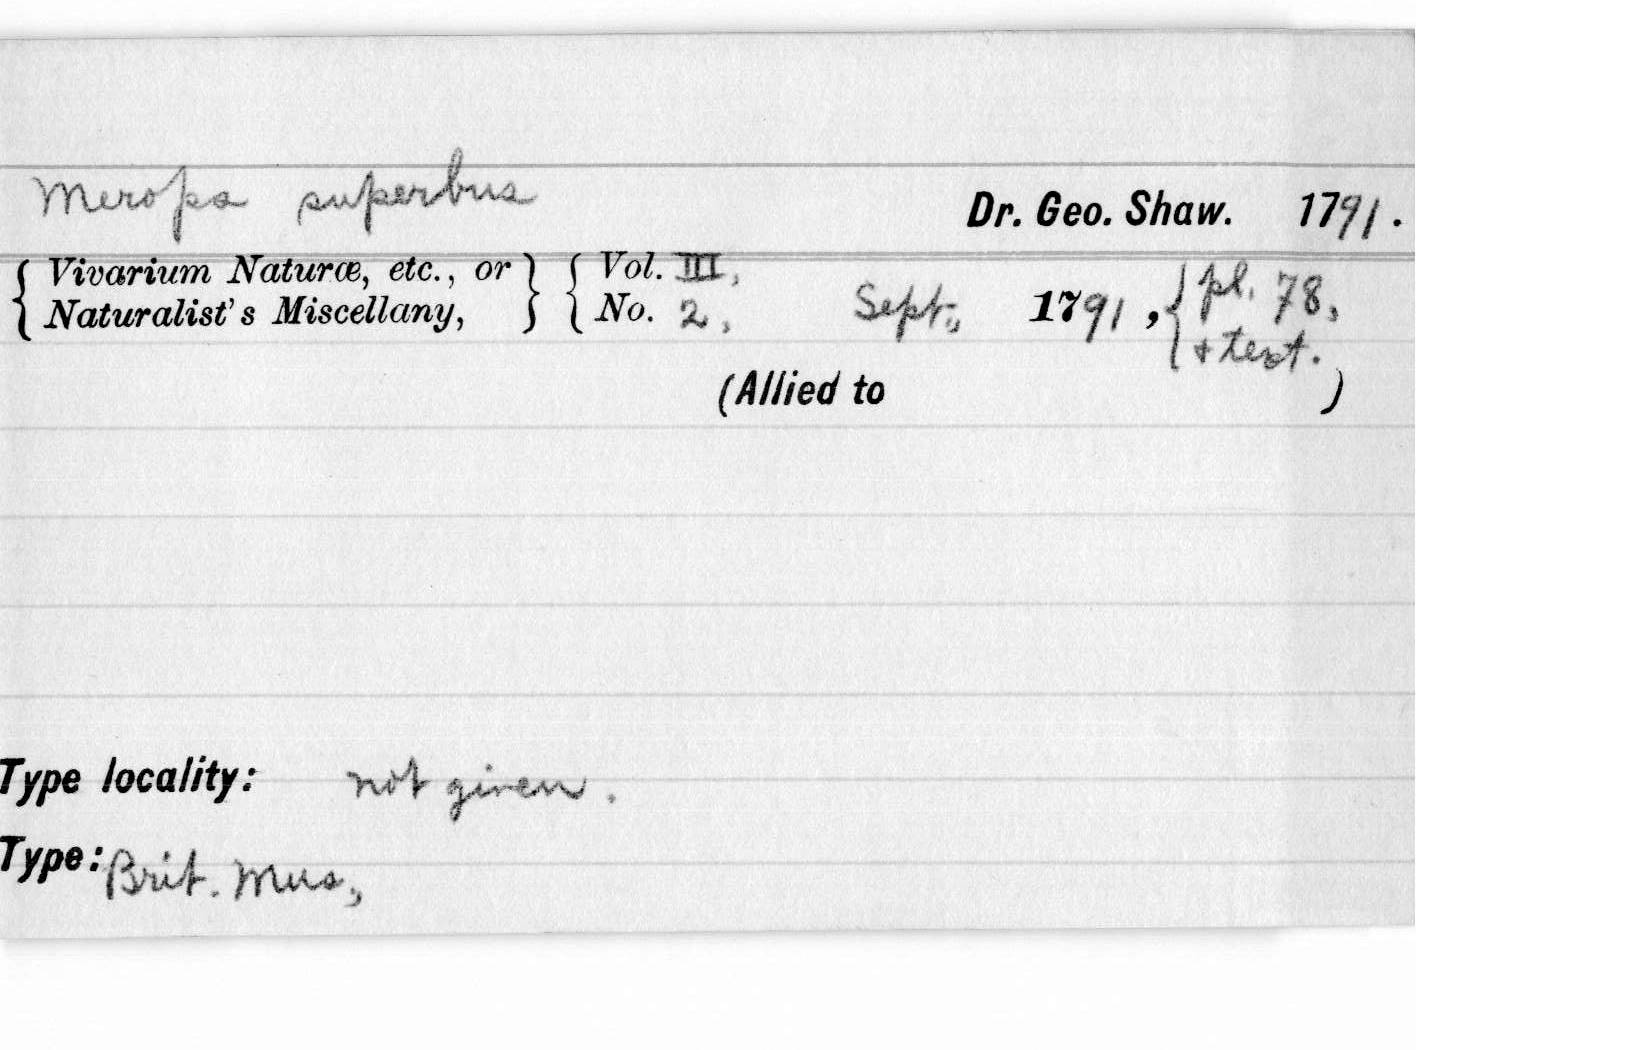 Merops superbus Dr. Geo. Shaw. 1791.
{ Vivarium Naturæ, etc., or } { Vol. III, { pl. 78,
{ Naturalist's Miscellany, } { No. 2, Sept., 1791, { + text.
(Allied to )
Type locality: not given.
Type: Brit. Mus.,